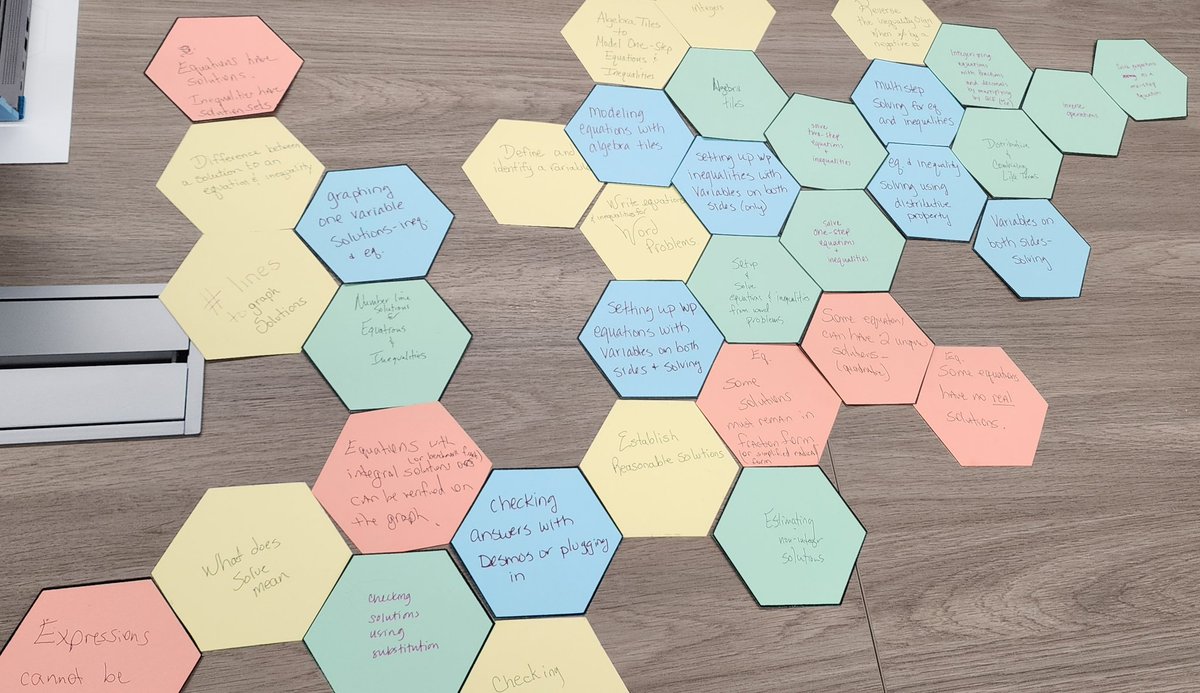 Equations have
solutions.
Inequalities have
solution sets
Difference between
a solution to an
equation & inequality
# lines
to graph
Solutions
graphing
one variable
Solutions-ineq.
& eq.
Number line
solutions
Equations
&
Inequalities
Equations with
(or benchmark
integral solutions
can be verified on
the graph.
What does
Solve
mean
Expressions
cannot be
checking
solutions
using
substitution
Checking
checking
answers with
Desmos or plugging
in
Establish
Reasonable solutions
Algebra Tiles
to
Model One-Step
Equations &
Inequalities
integers
Algebra
tiles
modeling
equations with
algebra tiles
Define and
identify a variable
Write equations
& inequalities for
Word
Problems.
Setting up WP
inequalities with
Variables on both
sides (only)
Setup
&
Solve
equations & inequalities
from word
problems
Setting up WP
equations with
Variables on both
sides & Solving
solve
two-step
equations
&
inequalities
solve
one-step
equations
&
inequalities
Reverse
the inequality sign
when by a
negative
multi step
solving for eq
and inequalities
eq & inequality
solving using
distributive
property
Variables on
both sides-
Solving
equations
with fractions
and decimals
by multiplying
by
Distributive
&
Combining
Like terms
inverse
operations
equations
equation
Eq.
Some
solutions
must remain in
fraction form
(or simplified radical
form
Some equations
can have 2 unique
solutions-
(quadratic)
Eq.
Some equations
have no real
solutions.
Estimating
non-integer
solutions